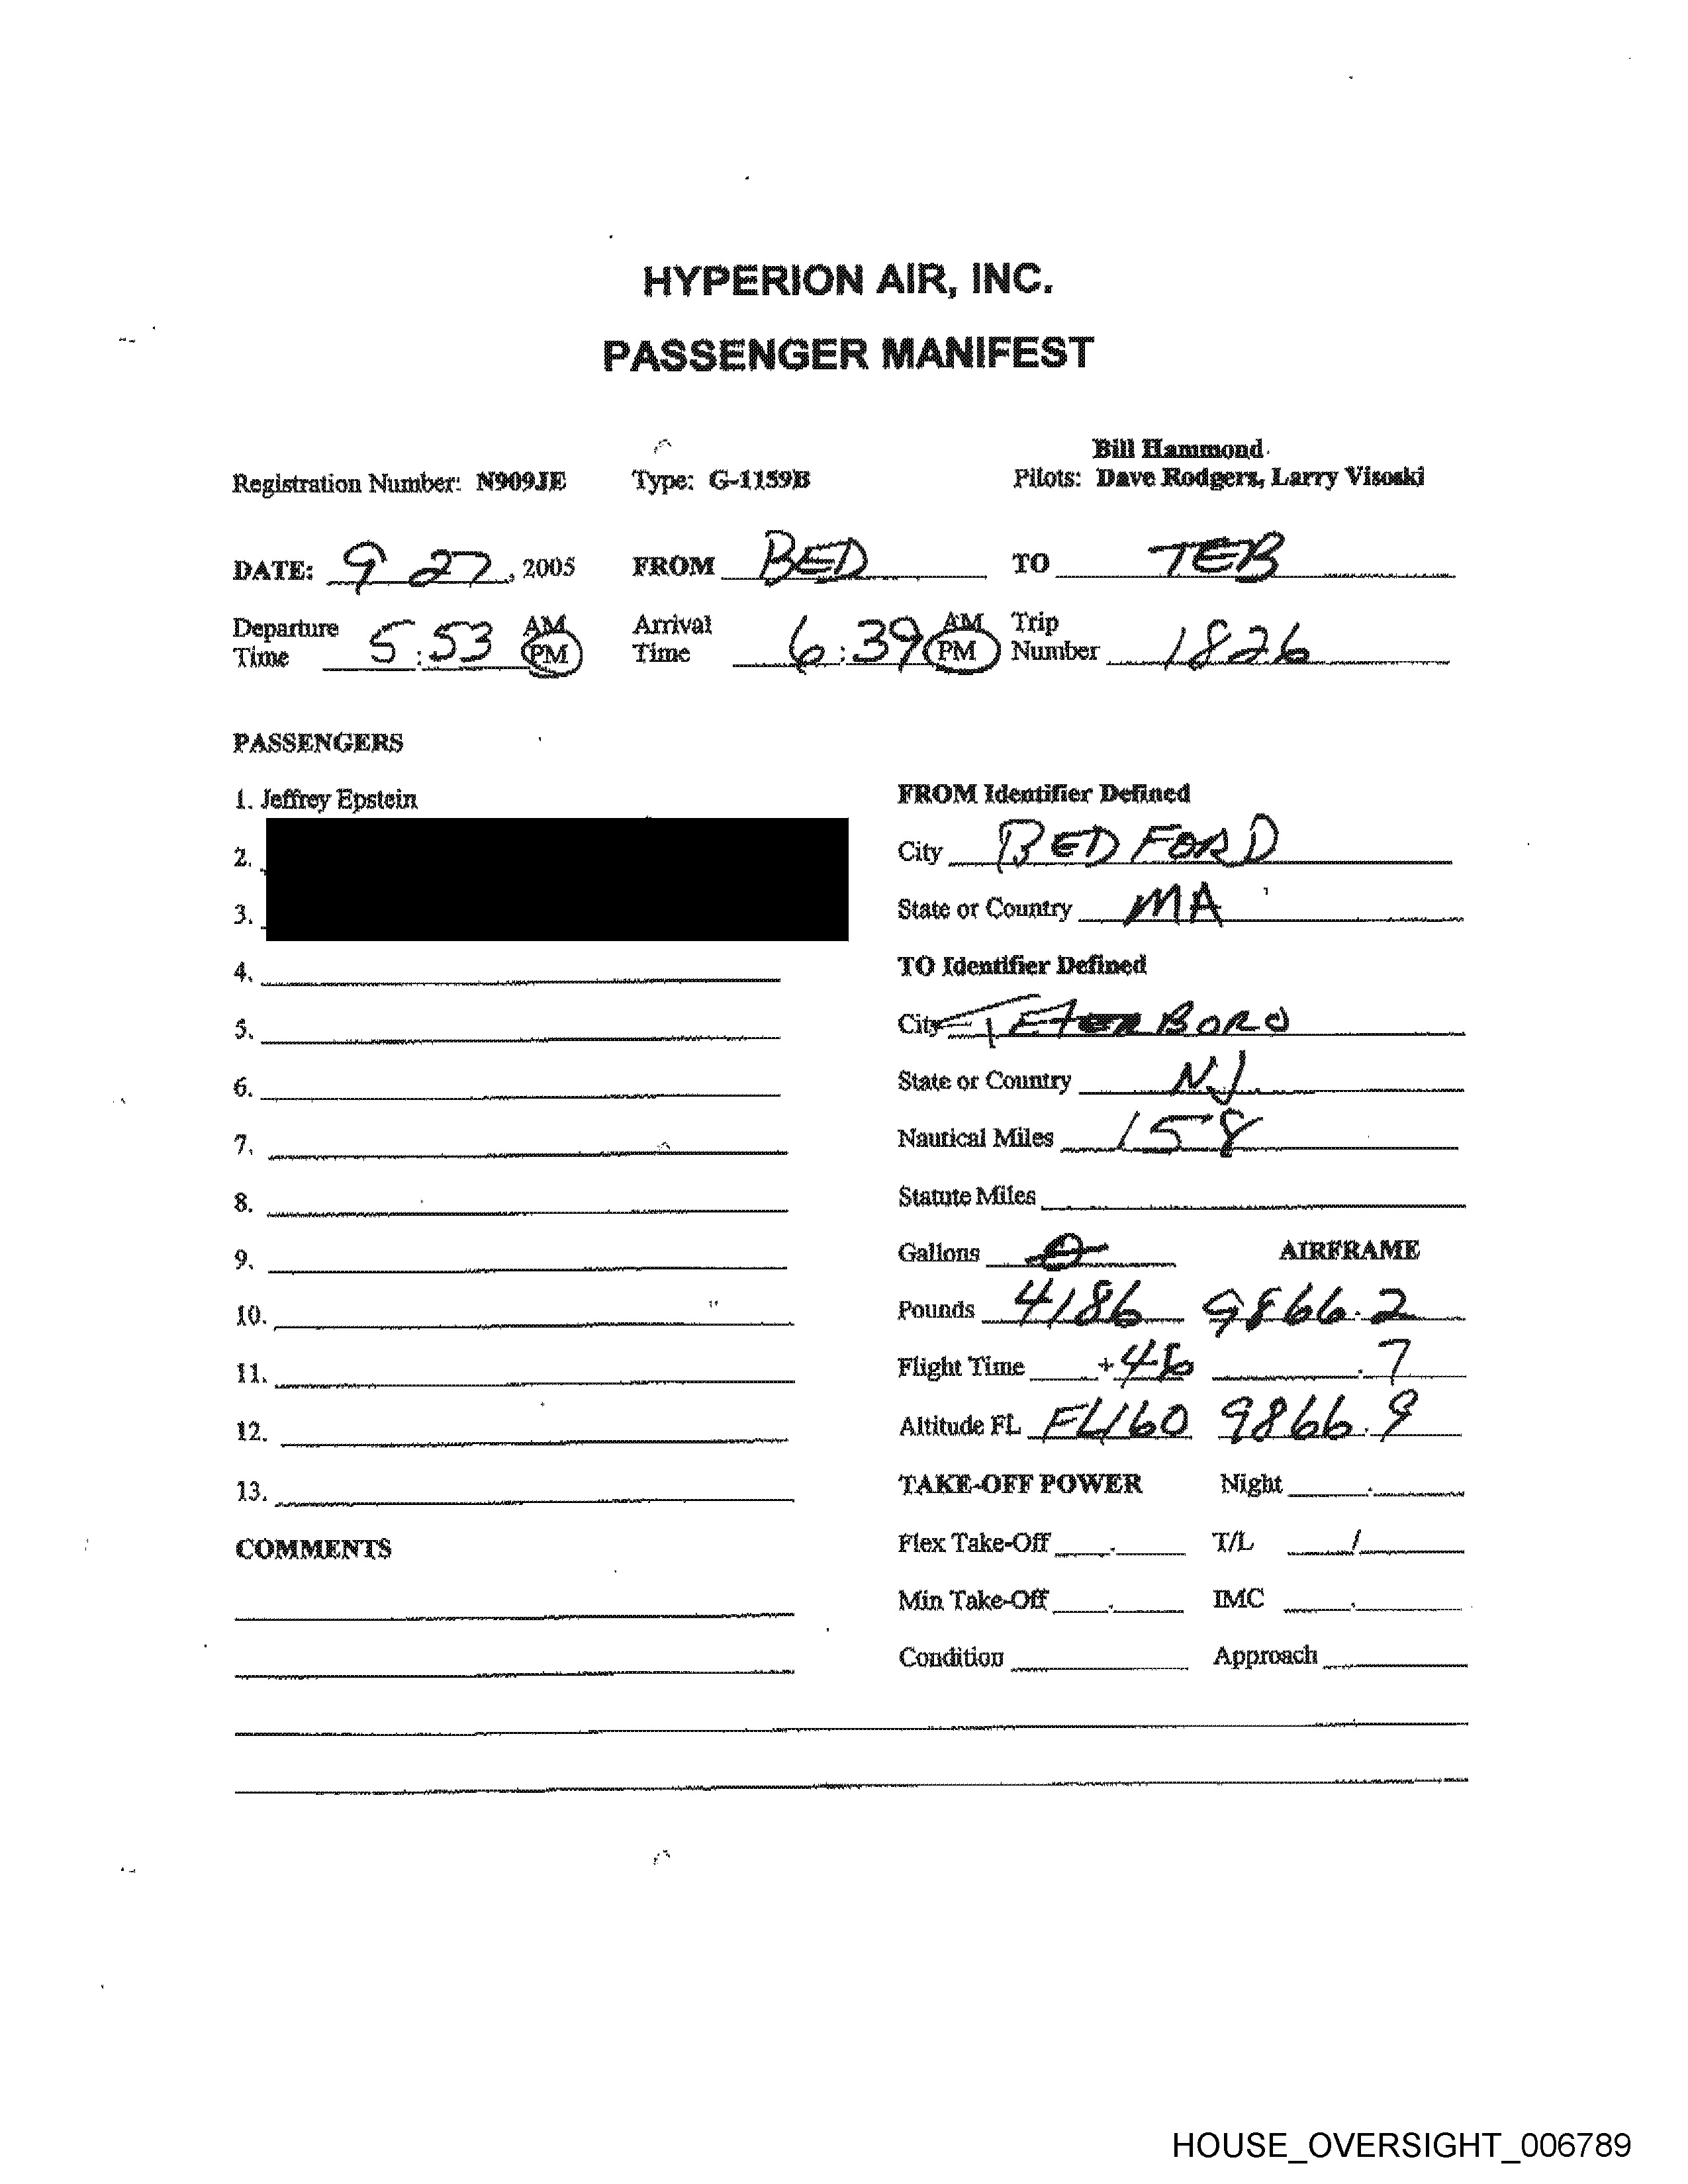 HYPERION AIR, INC.
PASSENGER MANIFEST
Bill Hammond
Registration Number: N909JE Type: G-1159B Pilots: Dave Rodgers, Larry Visoski
DATE: 9 27, 2005 FROM BED TO TEB
Departure Time 5:53 AM PM Arrival Time 6:39 AM PM Trip Number 1826
PASSENGERS
1. Jeffrey Epstein
2.
3.
4.
5.
6.
7.
8.
9.
10.
11.
12.
13.
COMMENTS
FROM Identifier Defined
City BEDFORD
State or Country MA
TO Identifier Defined
City TETERBORO
State or Country NJ
Nautical Miles 158
Statute Miles
Gallons 0 AIRFRAME
Pounds 4186 9866.2
Flight Time +46 .7
Altitude FL FL160 9866.9
TAKE-OFF POWER Night .
Flex Take-Off . T/L /
Min Take-Off . IMC .
Condition Approach
HOUSE_OVERSIGHT_006789